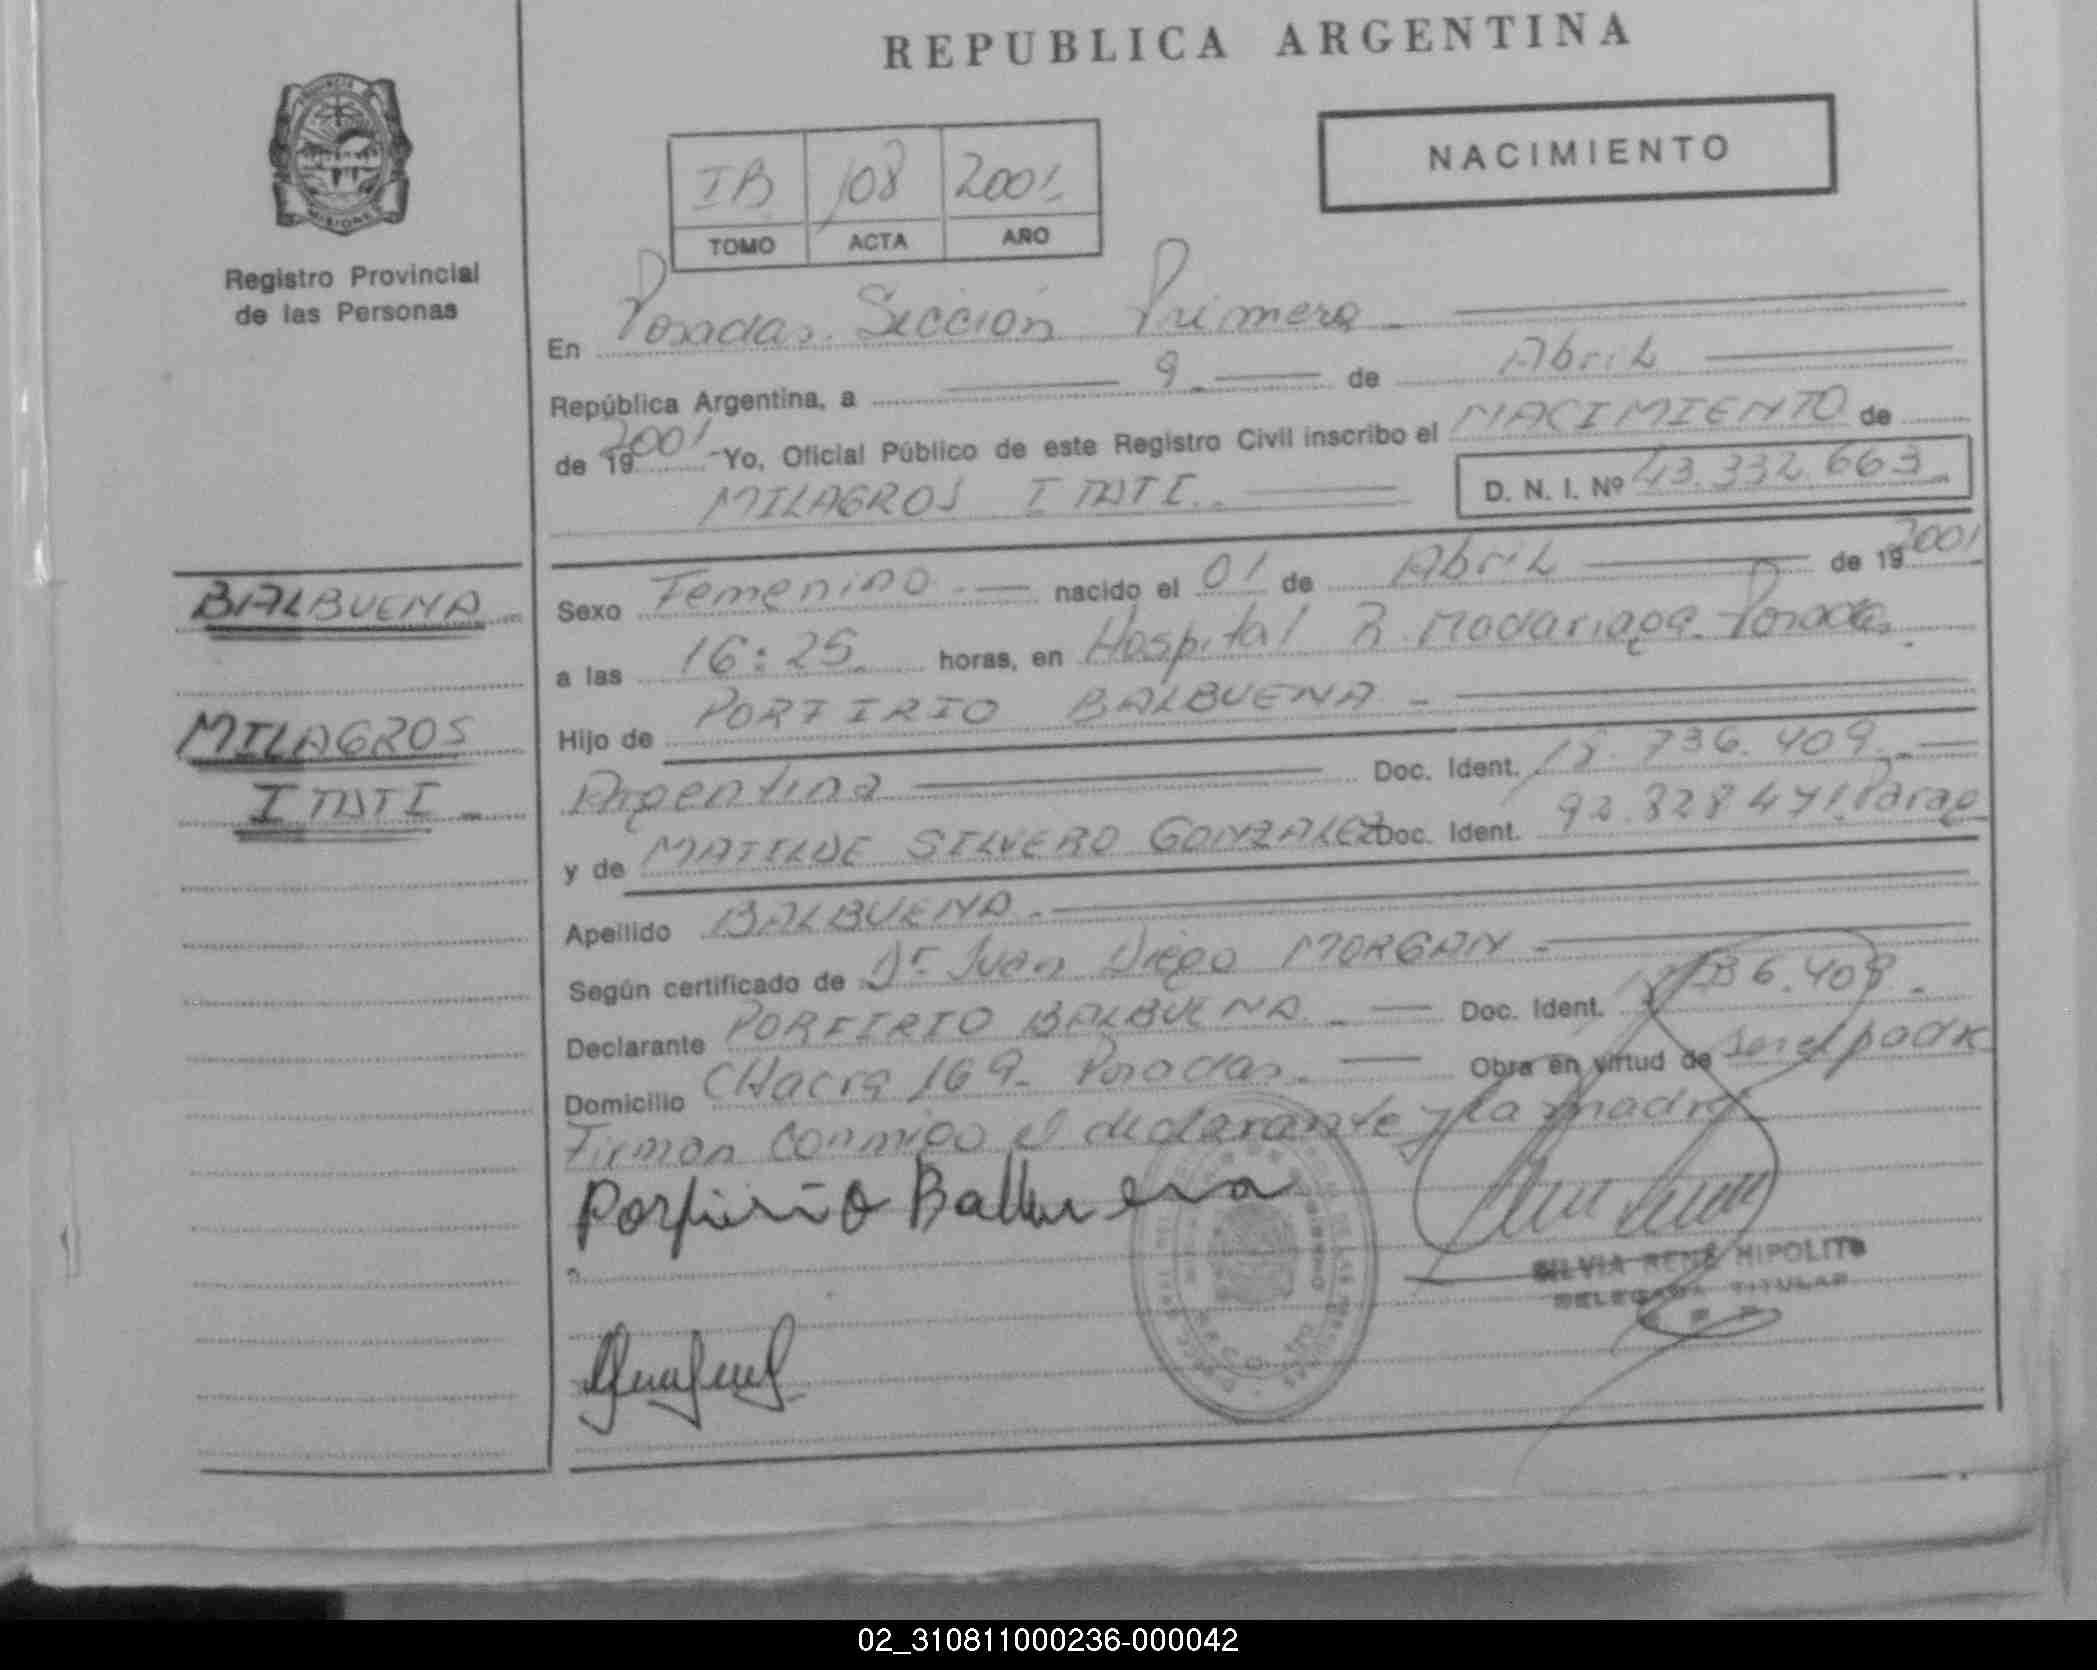 REPUBLICA ARGENTINA
PROVINCIA DE
MISIONES
Registro Provincial
de las Personas
NACIMIENTO
IB 108 2001
TOMO ACTA AÑO
En Posadas. Sección Primera
República Argentina, a 9 de Abril
de 19 2001 - Yo, Oficial Público de este Registro Civil inscribo el NACIMIENTO de
MILAGROS ITATI D. N. I. Nº 43.332.663
BALBUENA
MILAGROS
ITATI
Sexo Femenino nacido el 01 de Abril de 19 2001
a las 16:25 horas, en Hospital R. Madariaga. Posadas.
Hijo de PORFIRIO BALBUENA
Argentina Doc. Ident. 18.736.409
y de MATILDE SILVERO GONZALEZ Doc. Ident. 92.828471 Parag
Apellido BALBUENA
Según certificado de Dr Juan Diego MORGAN
Declarante PORFIRIO BALBUENA Doc. Ident. 36.409
Domicilio CHacra 169. Posadas. Obra en virtud de ser el padre
Firman conmigo el declarante y la madre
Porfirio Balbuena
SILVIA RENÉ HIPOLITO
DELEGADA TITULAR
02_310811000236-000042